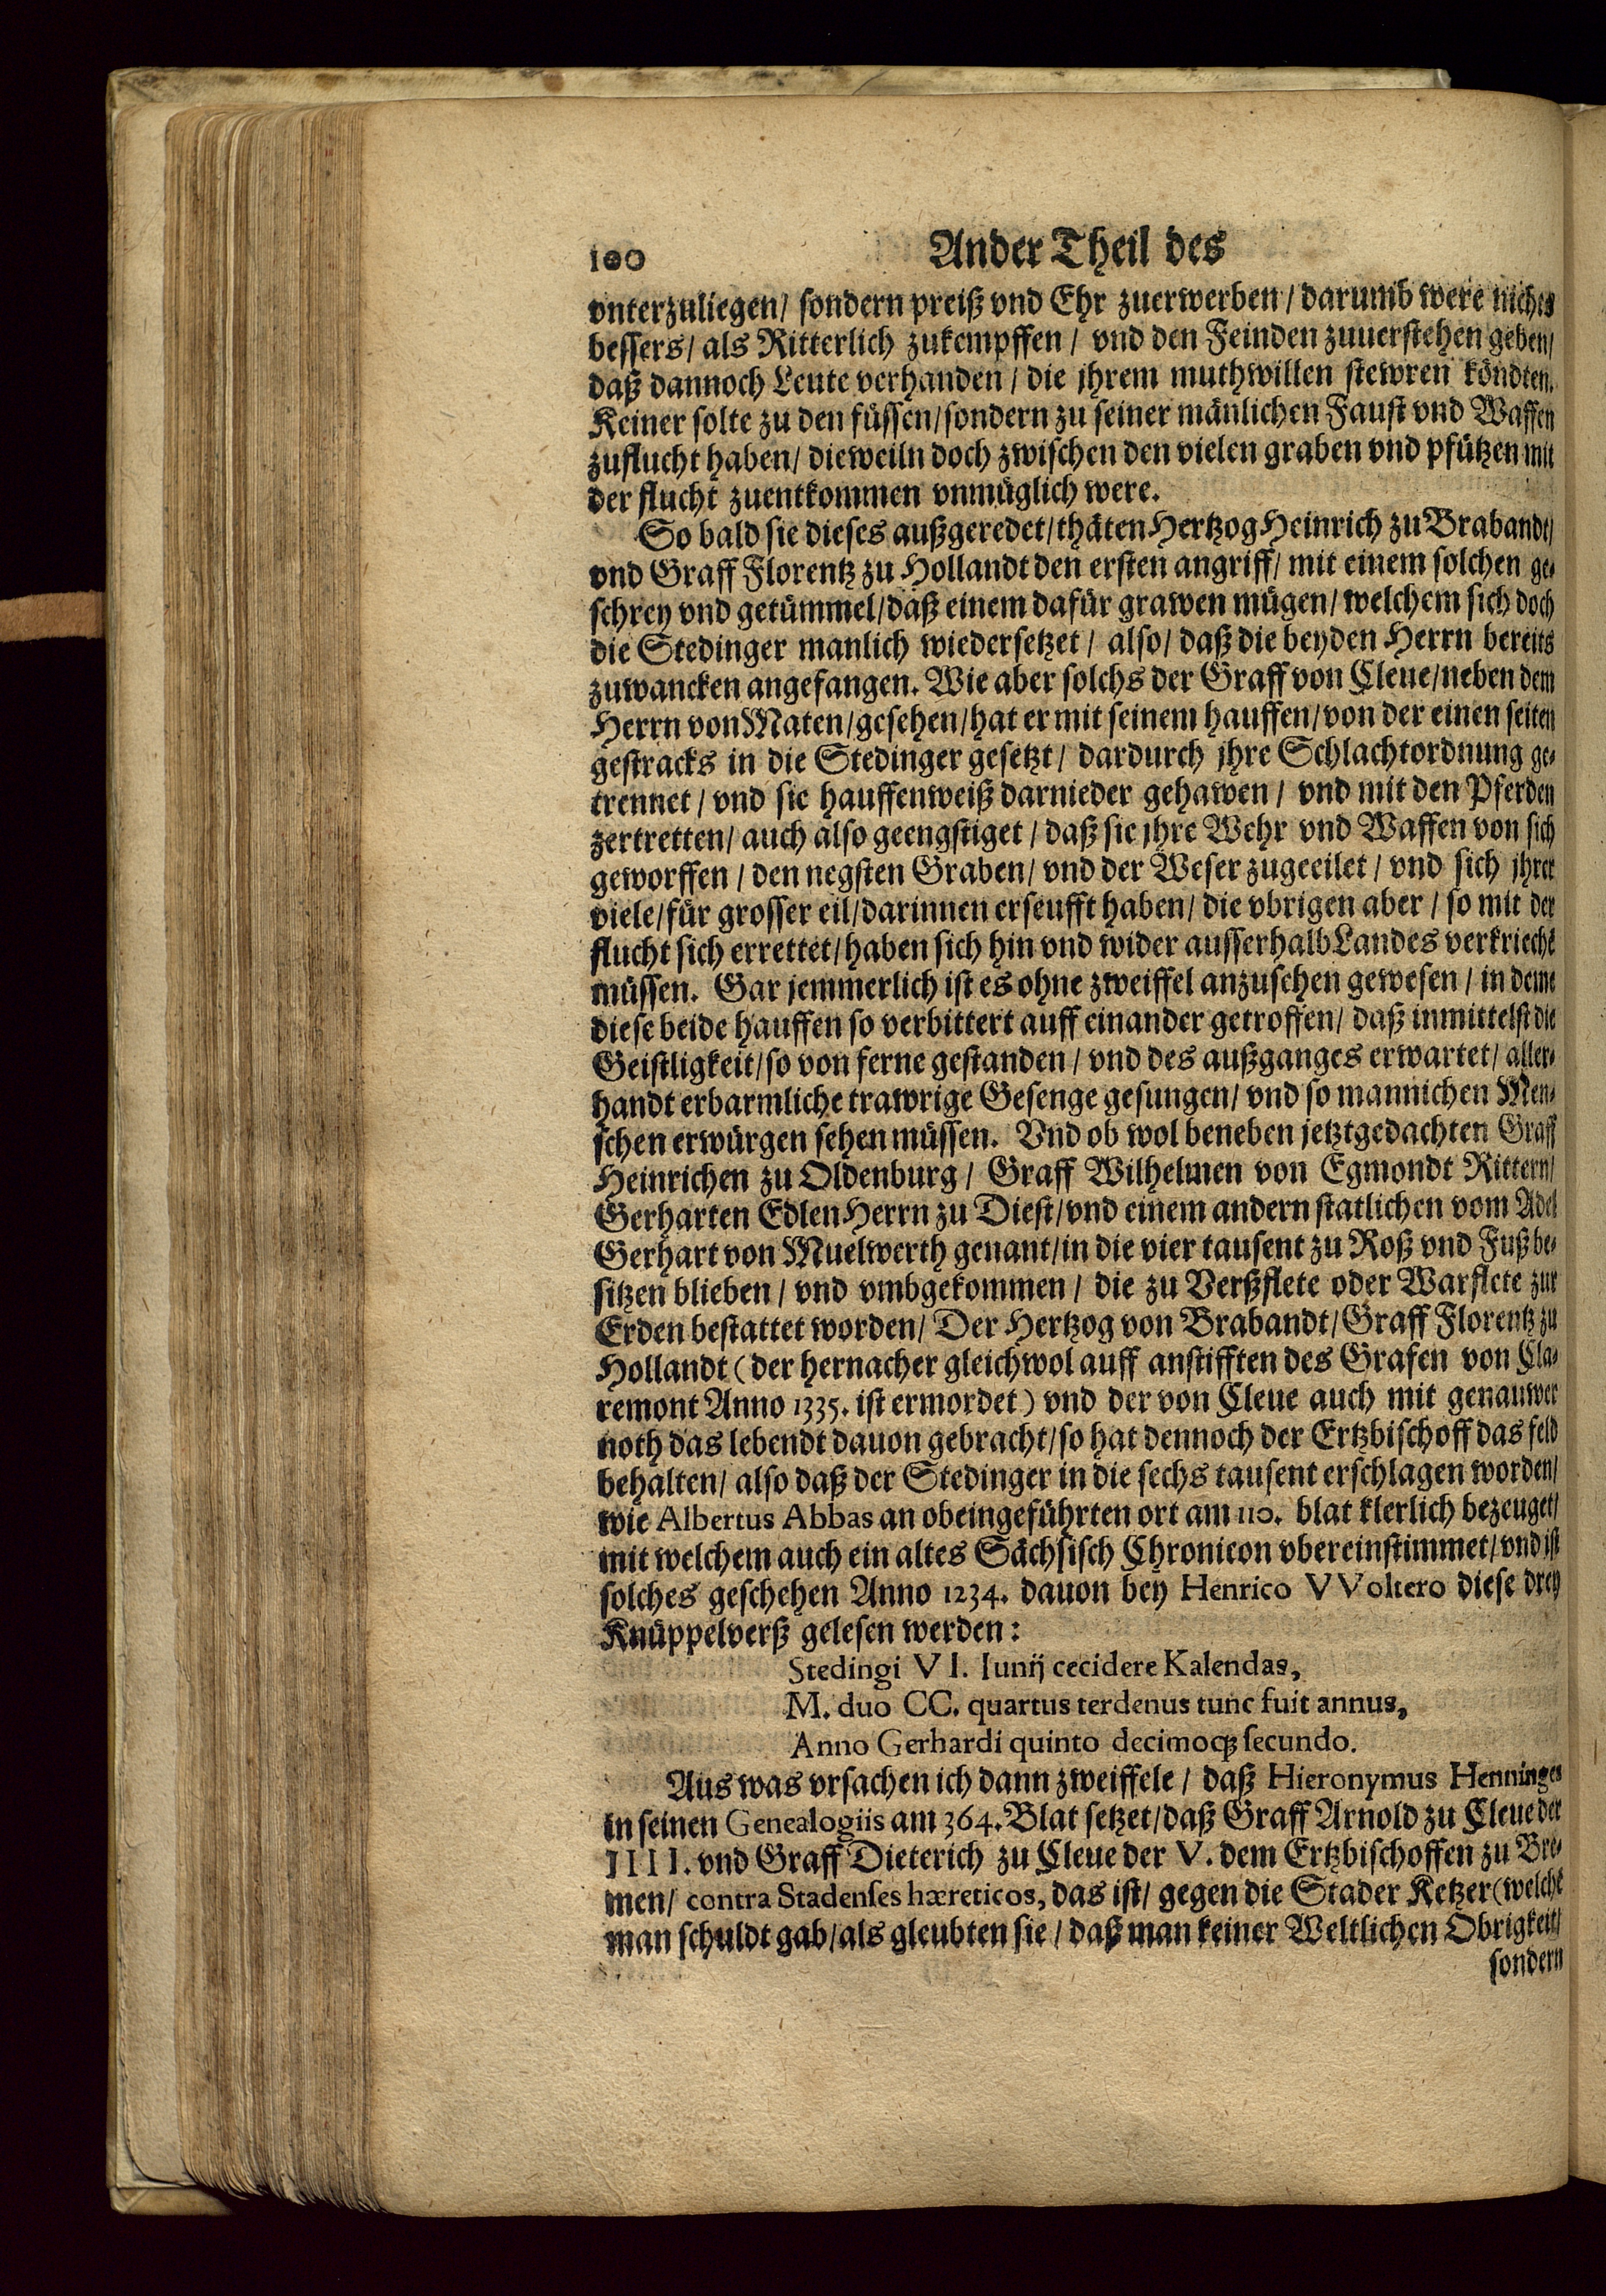 100 Ander Theil des
vnterzuliegen/ sondern preiß vnd Ehr zuerwerben/ darumb were nichts
bessers/ als Ritterlich zukempffen/ vnd den Feinden zuuerstehen geben/
daß dannoch Leute verhanden/ die jhrem muthwillen stewren köndten.
Keiner solte zu den füssen/ sondern zu seiner mänlichen Faust vnd Waffen
zuflucht haben/ dieweiln doch zwischen den vielen graben vnd pfützen mit
der flucht zuentkommen vnmüglich were.
So bald sie dieses außgeredet/ thäten Hertzog Heinrich zu Brabandt/
vnd Graff Florentz zu Hollandt den ersten angriff/ mit einem solchen ge-
schrey vnd getümmel/ daß einem dafür grawen mügen/ welchem sich doch
die Stedinger manlich wiedersetzet/ also/ daß die beyden Herrn bereits
zuwancken angefangen. Wie aber solchs der Graff von Cleue/ neben dem
Herrn von Maten/ gesehen/ hat er mit seinem hauffen/ von der einen seiten
gestracks in die Stedinger gesetzt/ dardurch jhre Schlachtordnung ge-
trennet/ vnd sie hauffenweiß darnieder gehawen/ vnd mit den Pferden
zertretten/ auch also geengstiget/ daß sie jhre Wehr vnd Waffen von sich
geworffen/ den negsten Graben/ vnd der Weser zugeeilet/ vnd sich jhrer
viele/ für grosser eil/ darinnen erseufft haben/ die vbrigen aber/ so mit der
flucht sich errettet/ haben sich hin vnd wider ausserhalb Landes verkriechē
müssen. Gar jemmerlich ist es ohne zweiffel anzusehen gewesen/ in deme
diese beide hauffen so verbittert auff einander getroffen/ daß inmittelst die
Geistligkeit/ so von ferne gestanden/ vnd des außganges erwartet/ aller-
handt erbarmliche trawrige Gesenge gesungen/ vnd so mannichen Men-
schen erwürgen sehen müssen. Vnd ob wol beneben jetztgedachten Graff
Heinrichen zu Oldenburg/ Graff Wilhelmen von Egmondt Rittern/
Gerharten Edlen Herrn zu Diest/ vnd einem andern statlichen vom Adel
Gerhart von Muelwerth genant/ in die vier tausent zu Roß vnd Fuß be-
sitzen blieben/ vnd vmbgekommen/ die zu Verßflete oder Warflete zur
Erden bestattet worden/ Der Hertzog von Brabandt/ Graff Florentz zu
Hollandt (der hernacher gleichwol auff anstifften des Grafen von Cla-
remont Anno 1335. ist ermordet) vnd der von Cleue auch mit genauwer
noth das lebendt dauon gebracht/ so hat dennoch der Ertzbischoff das feld
behalten/ also daß der Stedinger in die sechs tausent erschlagen worden/
wie Albertus Abbas an obeingeführten ort am 110. blat klerlich bezeuget/
mit welchem auch ein altes Sächsisch Chronicon vbereinstimmet/ vnd ist
solches geschehen Anno 1234. dauon bey Henrico VVoltero diese drey
Knüppelverß gelesen werden:
Stedingi VI. Iunij cecidere Kalendas,
M. duo CC. quartus terdenus tunc fuit annus,
Anno Gerhardi quinto decimoq́; secundo.
Aus was vrsachen ich dann zweiffele/ daß Hieronymus Henninges
in seinen Genealogiis am 364. Blat setzet/ daß Graff Arnold zu Cleue der
IIII. vnd Graff Dieterich zu Cleue der V. dem Ertzbischoffen zu Bre-
men/ contra Stadenses hæreticos, das ist/ gegen die Stader Ketzer (welchē
man schuldt gab/ als gleubten sie/ daß man keiner Weltlichen Obrigkeit/
sondern